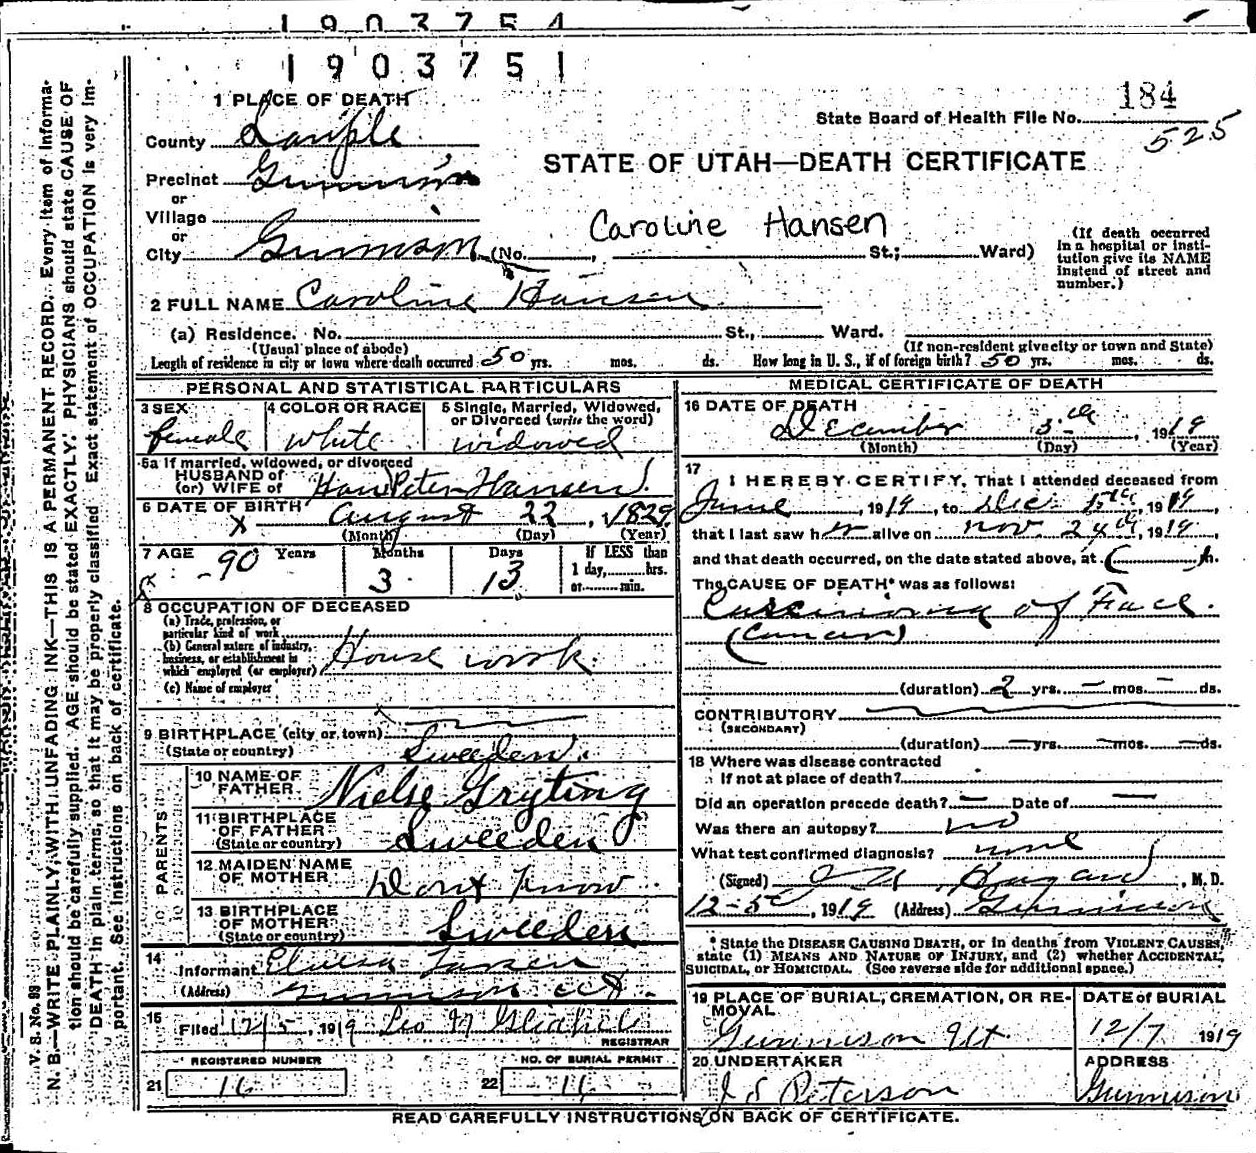 1903754
1903751
184
State Board of Health File No.
525
STATE OF UTAH—DEATH CERTIFICATE
1 PLACE OF DEATH
County Sanpete
Precinct Gunnison
or
Village
or
City Gunnison (No. , St.; Ward)
Caroline Hansen
(If death occurred in a hospital or insti-
tution give its NAME
instead of street and
number.)
2 FULL NAME Caroline Hansen
(a) Residence. No. St., Ward.
(Usual place of abode) (If non-resident give city or town and State)
Length of residence in city or town where death occurred 50 yrs. mos. ds. How long in U. S., if of foreign birth? 50 yrs. mos. ds.
PERSONAL AND STATISTICAL PARTICULARS
3 SEX 4 COLOR OR RACE 5 Single, Married, Widowed, or Divorced (write the word)
female white widowed
5a If married, widowed, or divorced
HUSBAND of
(or) WIFE of Hans Peter Hansen
6 DATE OF BIRTH August 22, 1829
(Month) (Day) (Year)
7 AGE Years Months Days If LESS than
1 day, hrs.
or min.
90 3 13
8 OCCUPATION OF DECEASED
(a) Trade, profession, or
particular kind of work
(b) General nature of industry,
business, or establishment in
which employed (or employer) House work
(c) Name of employer
9 BIRTHPLACE (city or town)
(State or country) Sweeden
PARENTS
10 NAME OF FATHER Nielse Gryting
11 BIRTHPLACE OF FATHER
(State or country) Sweeden
12 MAIDEN NAME OF MOTHER Dont Know
13 BIRTHPLACE OF MOTHER
(State or country) Sweeden
14
Informant
(Address) Gunnison Ut.
15
Filed 12/5, 1919 Leo
REGISTRAR
REGISTERED NUMBER NO. OF BURIAL PERMIT
21 16 22 16
MEDICAL CERTIFICATE OF DEATH
16 DATE OF DEATH
December 5th, 1919
(Month) (Day) (Year)
17
I HEREBY CERTIFY, That I attended deceased from
June, 1919, to Dec. 5th, 1919
that I last saw her alive on Nov. 24th, 1919,
and that death occurred, on the date stated above, at m.
The CAUSE OF DEATH* was as follows:
Carcinoma of Face.
(Cancer)
(duration) 2 yrs. — mos. — ds.
CONTRIBUTORY
(SECONDARY)
(duration) — yrs. — mos. — ds.
18 Where was disease contracted
if not at place of death?
Did an operation precede death? — Date of —
Was there an autopsy? no
What test confirmed diagnosis? none
(Signed) , M. D.
12-5, 1919 (Address) Gunnison
* State the DISEASE CAUSING DEATH, or in deaths from VIOLENT CAUSES,
state (1) MEANS AND NATURE OF INJURY, and (2) whether ACCIDENTAL,
SUICIDAL, or HOMICIDAL. (See reverse side for additional space.)
19 PLACE OF BURIAL, CREMATION, OR RE-
MOVAL DATE of BURIAL
Gunnison Ut 12/7 1919
20 UNDERTAKER ADDRESS
J S Peterson Gunnison
READ CAREFULLY INSTRUCTIONS ON BACK OF CERTIFICATE.
V. S. No. 93
N. B.—WRITE PLAINLY, WITH UNFADING INK—THIS IS A PERMANENT RECORD. Every item of informa-
tion should be carefully supplied. AGE should be stated EXACTLY. PHYSICIANS should state CAUSE OF
DEATH in plain terms, so that it may be properly classified. Exact statement of OCCUPATION is very im-
portant. See instructions on back of certificate.